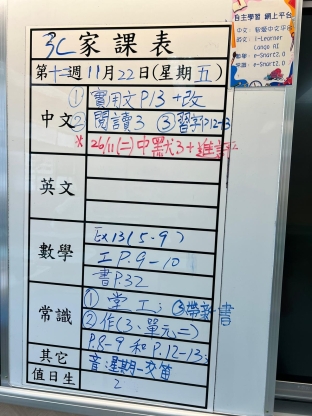 3C家課表
第十二週11月22日(星期五)
中文
① 實用文P.13+改
② 閱讀3 ③習字P.12-13
* 26/11(二)中默3+進評2
英文
數學
Ex13(5-9)
工P.9-10
書P.32
常識
① 堂工; ③帶新書
②作(3:單元二)
P.8-9 和 P.12-13;
其它
音:星期一交笛
值日生
2
自主學習 網上平台
i-Learner
e-Smart2.0
e-Smart2.0